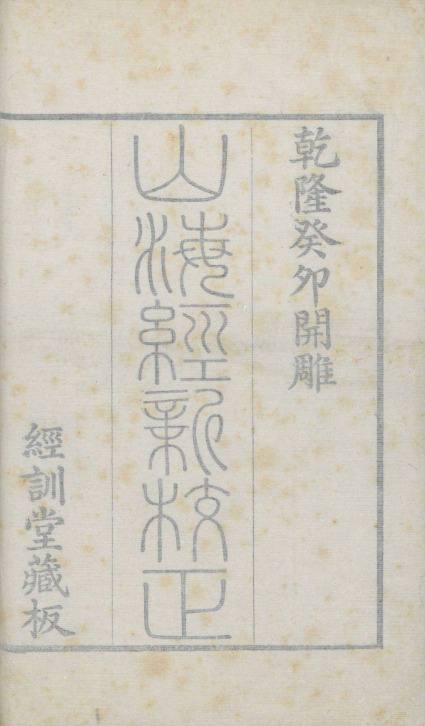 乾隆癸卯開雕
山海經新校正
經訓堂藏板